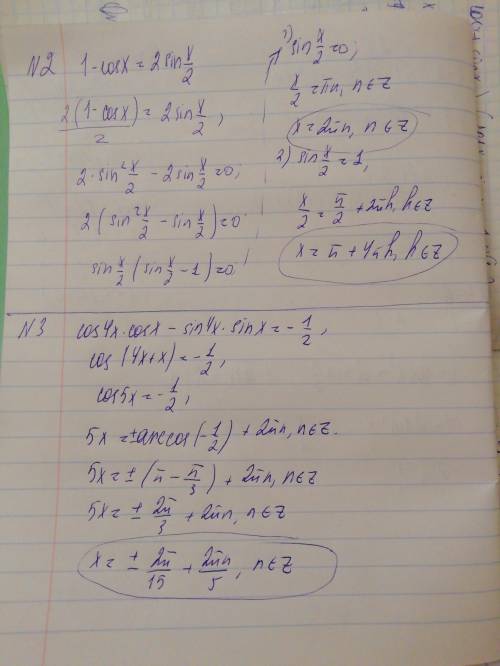 N2 1-cosx = 2sin x/2
2(1-cosx)/2 = 2sin x/2,
2·sin² x/2 - 2sin x/2 = 0,
2(sin² x/2 - sin x/2) = 0
sin x/2 (sin x/2 - 1) = 0
1) sin x/2 = 0,
x/2 = πn, n∈Z
x = 2πn, n∈Z
2) sin x/2 = 1,
x/2 = π/2 + 2πn, n∈Z
x = π + 4πn, n∈Z
N3 cos4x·cosx - sin4x·sinx = -1/2,
cos(4x+x) = -1/2,
cos5x = -1/2,
5x = ±arccos(-1/2) + 2πn, n∈Z.
5x = ±(π - π/3) + 2πn, n∈Z
5x = ± 2π/3 + 2πn, n∈Z
x = ± 2π/15 + 2πn/5, n∈Z